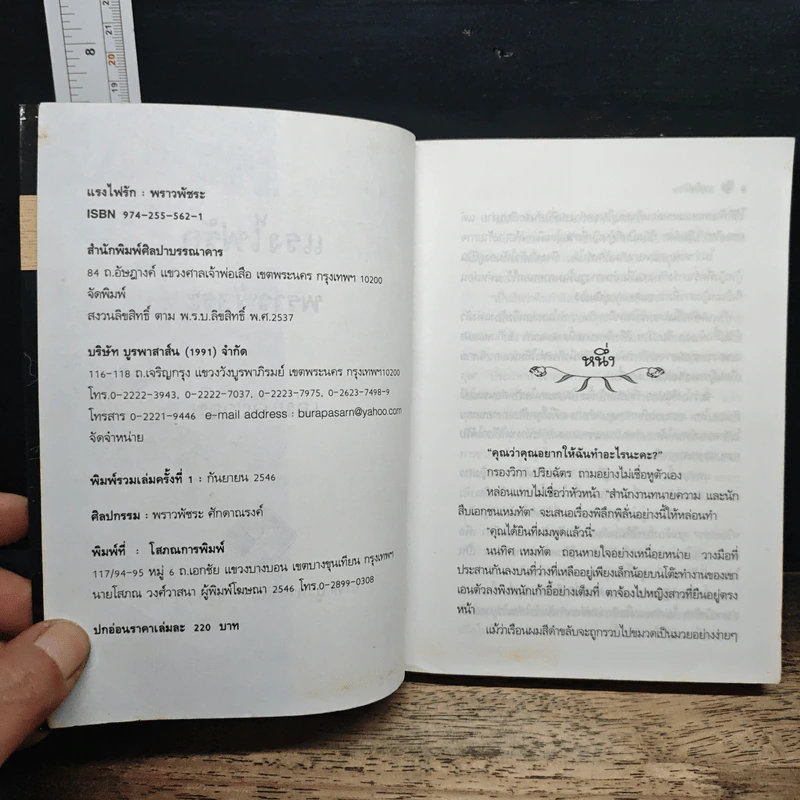 8
20
20
19
แรงไฟรัก : พราวพัชระ
ISBN 974-255-562-1
สำนักพิมพ์ศิลปาบรรณาคาร
84 ถ.อัษฎางค์ แขวงศาลเจ้าพ่อเสือ เขตพระนคร กรุงเทพฯ 10200
จัดพิมพ์
สงวนลิขสิทธิ์ ตาม พ.ร.บ.ลิขสิทธิ์ พ.ศ.2537
บริษัท บูรพาสาส์น (1991) จำกัด
116-118 ถ.เจริญกรุง แขวงวังบูรพาภิรมย์ เขตพระนคร กรุงเทพฯ10200
โทร.0-2222-3943, 0-2222-7037, 0-2223-7975, 0-2623-7498-9
โทรสาร 0-2221-9446 e-mail address : burapasarn@yahoo.com
จัดจำหน่าย
พิมพ์รวมเล่มครั้งที่ 1 : กันยายน 2546
ศิลปกรรม : พราวพัชระ ศักดาณรงค์
พิมพ์ที่ : โสภณการพิมพ์
117/94-95 หมู่ 6 ถ.เอกชัย แขวงบางบอน เขตบางขุนเทียน กรุงเทพฯ
นายโสภณ วงศ์วาสนา ผู้พิมพ์โฆษณา 2546 โทร.0-2899-0308
ปกอ่อนราคาเล่มละ 220 บาท
หนึ่ง
"คุณว่าคุณอยากให้ฉันทำอะไรนะคะ?"
กรองวิกา ปริยฉัตร ถามอย่างไม่เชื่อหูตัวเอง
หล่อนแทบไม่เชื่อว่าหัวหน้า "สำนักงานทนายความ และนัก
สืบเอกชนเหมทัต" จะเสนอเรื่องพิลึกพิลั่นอย่างนี้ให้หล่อนทำ
"คุณได้ยินที่ผมพูดแล้วนี่"
นนทิศ เหมทัต ถอนหายใจอย่างเหนื่อยหน่าย วางมือที่
ประสานกันลงบนที่ว่างที่เหลืออยู่เพียงเล็กน้อยบนโต๊ะทำงานของเขา
เอนตัวลงพิงพนักเก้าอี้อย่างเต็มที่ ตาจ้องไปหญิงสาวที่ยืนอยู่ตรง
หน้า
แม้ว่าเรือนผมสีดำขลับจะถูกรวบไปขมวดเป็นมวยอย่างง่ายๆ